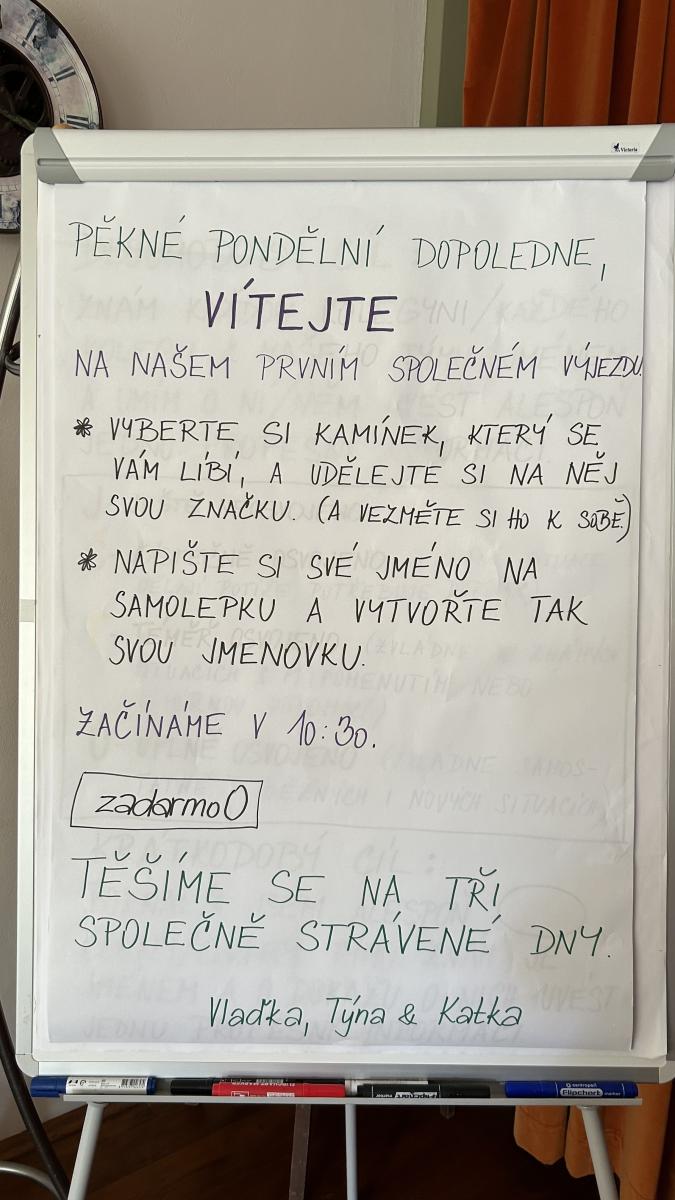 PĚKNÉ PONDĚLNÍ DOPOLEDNE,
VÍTEJTE
NA NAŠEM PRVNÍM SPOLEČNÉM VÝJEZDU.
* VYBERTE SI KAMÍNEK, KTERÝ SE
VÁM LÍBÍ, A UDĚLEJTE SI NA NĚJ
SVOU ZNAČKU. (A VEZMĚTE SI HO K SOBĚ.)
* NAPIŠTE SI SVÉ JMÉNO NA
SAMOLEPKU A VYTVOŘTE TAK
SVOU JMENOVKU.
ZAČÍNÁME V 10:30.
zadarmo0
TĚŠÍME SE NA TŘI
SPOLEČNĚ STRÁVENÉ DNY.
Vlaďka, Týna & Katka
Victoria
centropen
Flipchart marker